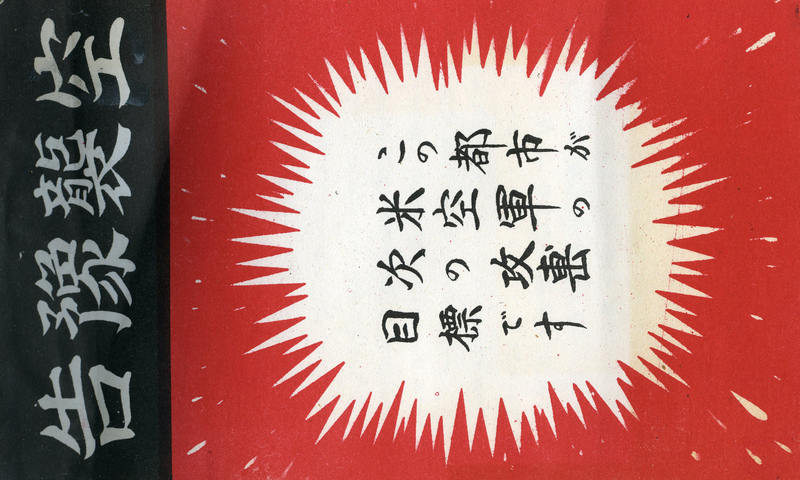 空襲豫告
この都市が
米空軍の
次の攻撃
目標です